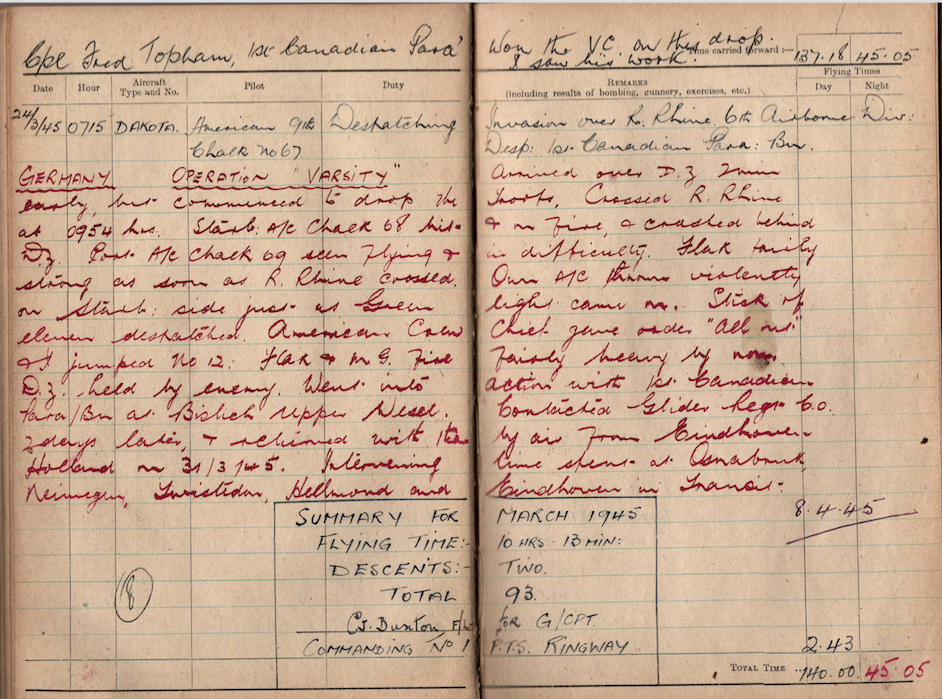 Cpl Fred Topham, 1st Canadian Para' Won the V.C. on this drop.
I saw his work. Time carried forward :— 137.18 45.05
Flying Times
Date Hour Aircraft Type and No. Pilot Duty REMARKS (including results of bombing, gunnery, exercises, etc.) Day Night
24/3/45 0715 DAKOTA. American 9th Despatching Invasion over R. Rhine 6th Airborne Div:
Chalk No 67 Desp: 1st Canadian Para: Bn.
GERMANY OPERATION "VARSITY" Arrived over D.Z 2min
early, but commenced to drop the troops, Crossed R. Rhine
at 0954 hrs. Starb: A/C Chalk 68 hit & on fire, & crashed behind
D.Z. Port A/C Chalk 69 seen flying & in difficulty. Flak fairly
strong as soon as R. Rhine crossed. Own A/C thrown violently
on Starb: side just as Green light came on. Stick of
eleven despatched. American Crew Chief gave order "All out"
& I jumped No 12. Flak & M.G. Fire fairly heavy by now.
D.Z. held by enemy. Went into action with 1st Canadian
Para/Bn at Bislich Upper Wesel. Contacted Glider Regt C.O.
2 days later, & returned with by air from Eindhoven
Holland on 31/3/45. Intervening time spent at Osnabruk
Neimegen, Twistedon, Hellmond and Eindhoven in Transit.
SUMMARY FOR MARCH 1945 8.4.45
FLYING TIME:- 10 HRS. 13 MIN:
DESCENTS:- TWO.
8 TOTAL 93.
C.J. Buxton, F/Lt for G/CPT.
COMMANDING No 1 P.T.S. RINGWAY 2.43
TOTAL TIME 140.00 45.05